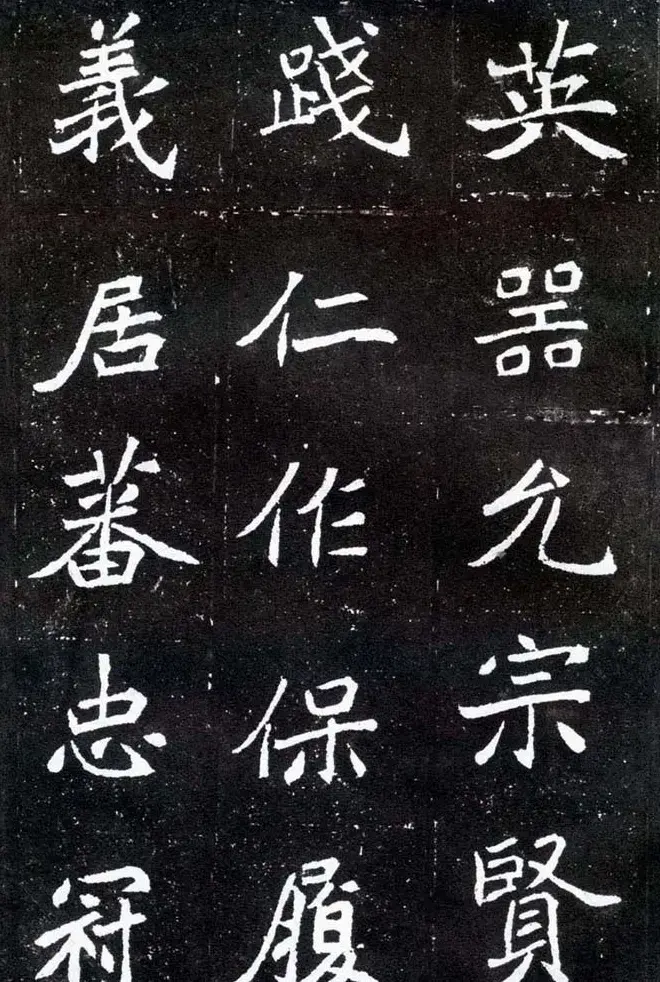 英噐允宗賢
踐仁作保履
義居蕃忠冠